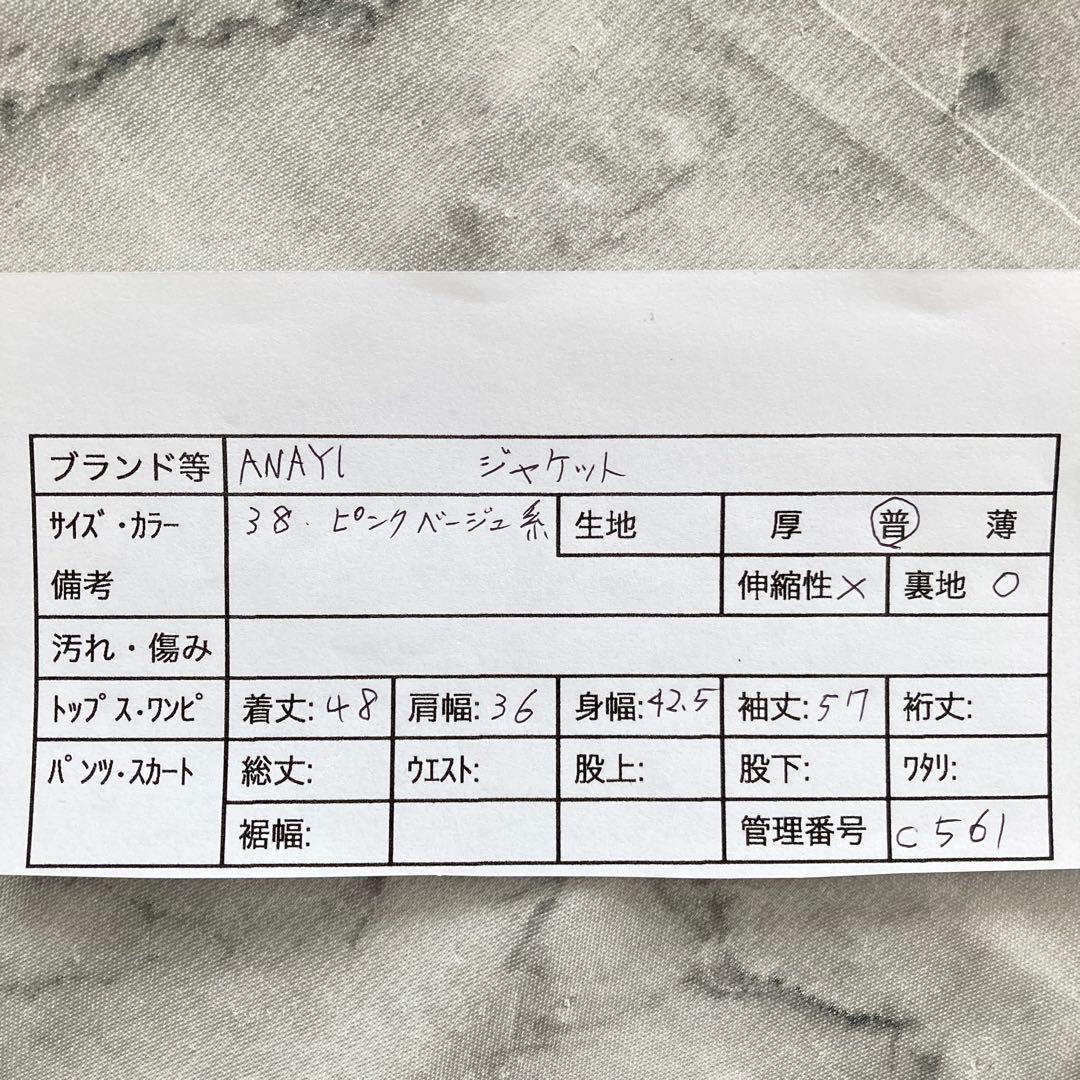 ブランド等 ANAYI ジャケット
サイズ・カラー 38. ピンクベージュ系 生地 厚 普 薄
備考 伸縮性× 裏地 ○
汚れ・傷み
トップス・ワンピ 着丈:48 肩幅:36 身幅:42.5 袖丈:57 裄丈:
パンツ・スカート 総丈: ウエスト: 股上: 股下: ワタリ:
裾幅: 管理番号 C561